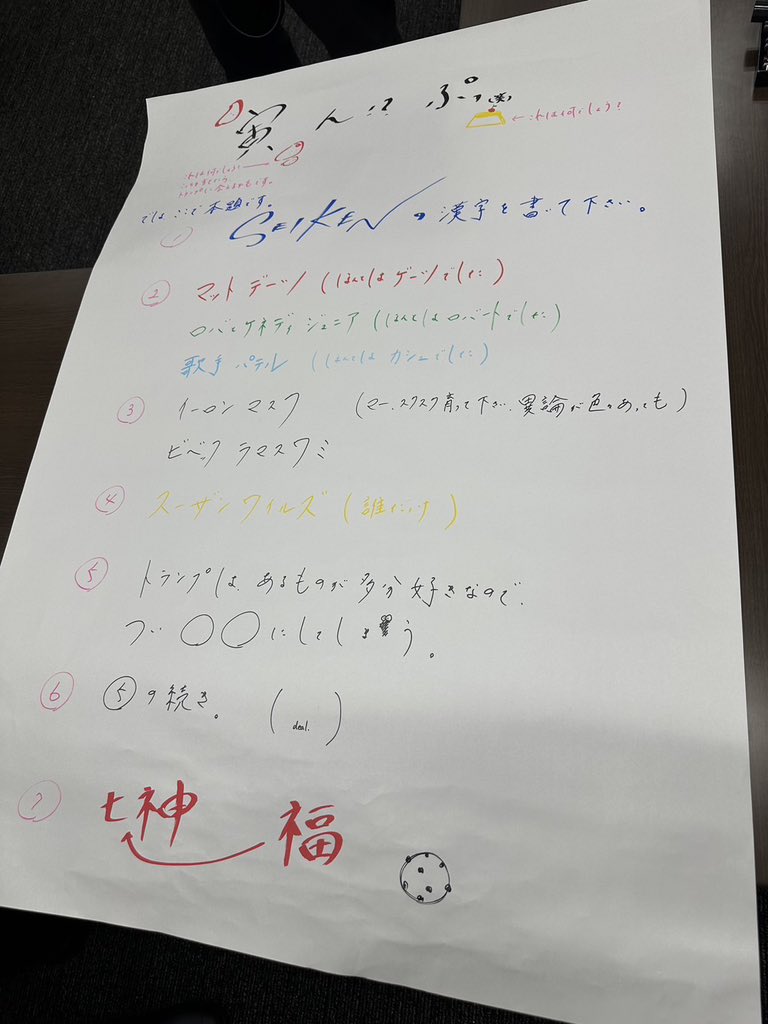 寅 ん!? ぷ。
←これは何でしょう?
これは何でしょう?
では、ここで本題です。
① SEIKENの漢字を書いて下さい。
② マット ゲーツ (ほんとはゲーツでした)
ロバとケネディジュニア (ほんとはロバートでした)
歌手 パテル (ほんとはカシュでした)
③ イーロン マスク (マー、スクスク育って下さい、異論が色々あっても)
ビベック ラマスワミ
④ スーザン ワイルズ (誰だっけ)
⑤ トランプは、あるものが多分好きなので、
つい〇〇にしてしまう。
⑥ ⑤の続き。 (deal.)
⑦ 七神 福